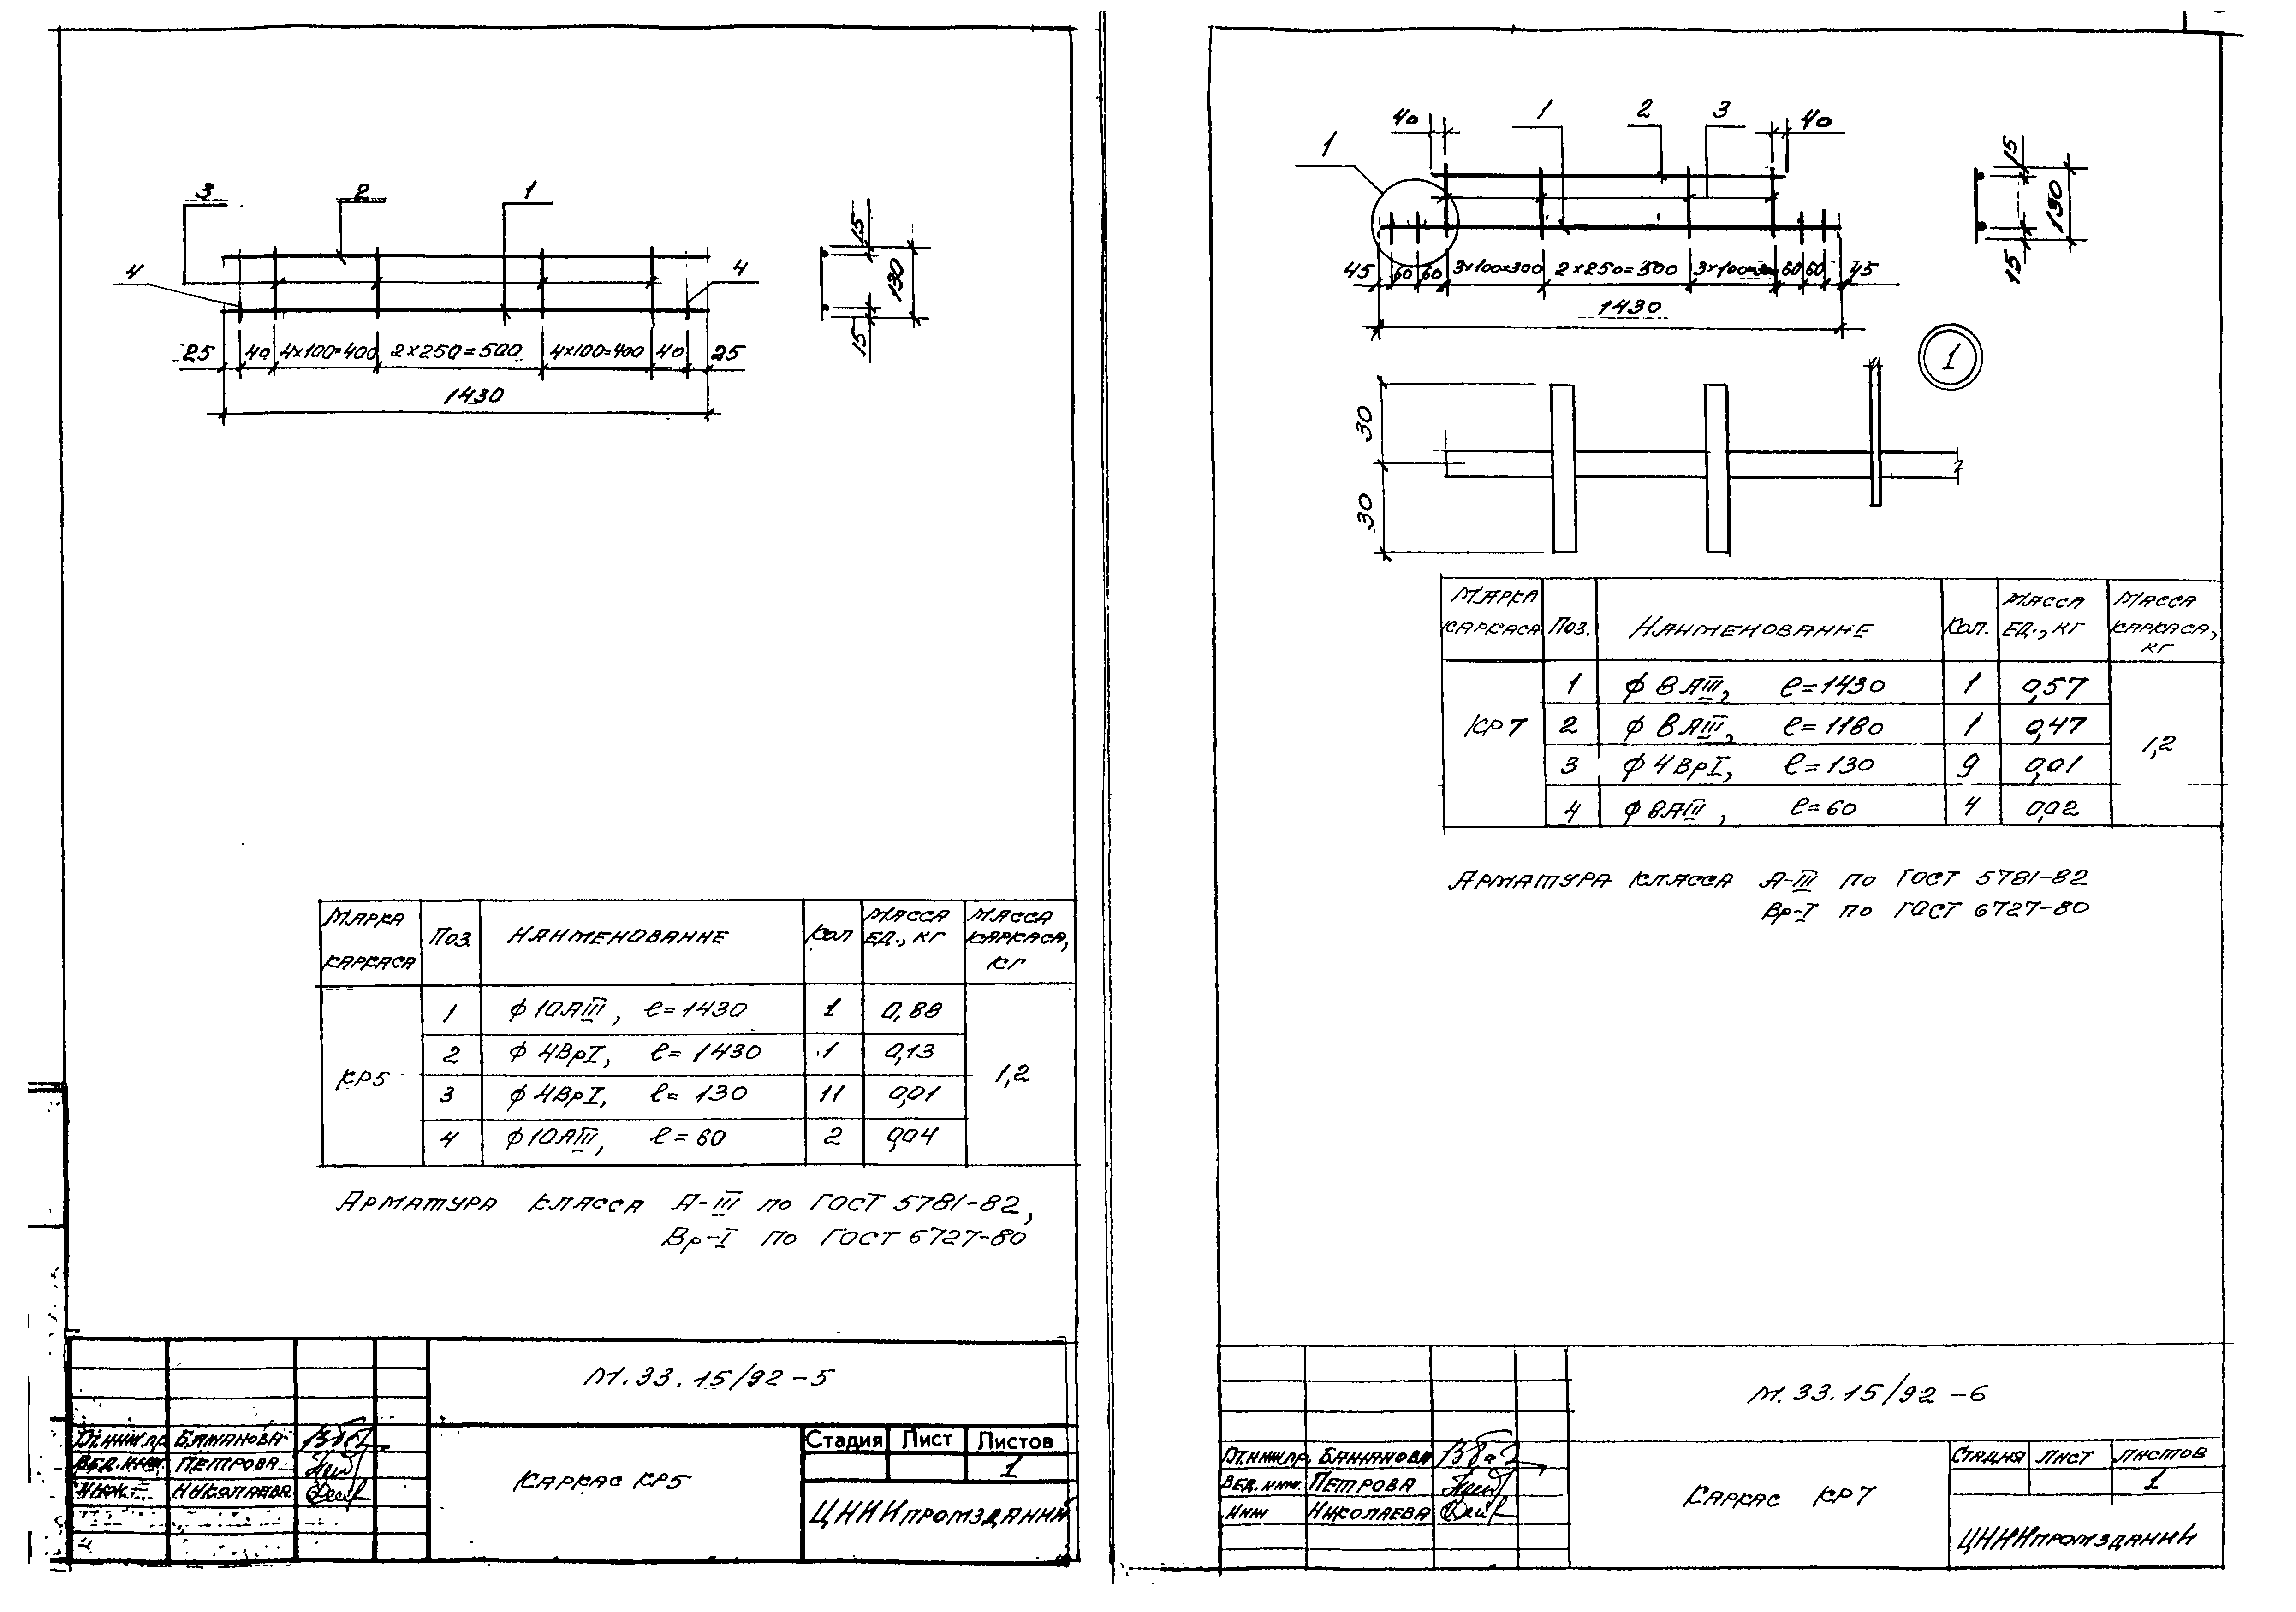 3 2 1
4 4
25 40 4×100=400 2×250=500 4×100=400 40 25
1430
15
130
15
МАРКА КАРКАСА ПОЗ. НАИМЕНОВАНИЕ КОЛ МАССА ЕД., КГ МАССА КАРКАСА, КГ
КР5
1 ϕ10АIII, ℓ=1430 1 0,88
2 ϕ4ВрI, ℓ=1430 1 0,13
3 ϕ4ВрI, ℓ=130 11 0,01
4 ϕ10АIII, ℓ=60 2 0,04
1,2
АРМАТУРА КЛАССА А-III ПО ГОСТ 5781-82,
Вр-I ПО ГОСТ 6727-80
М.33.15/92-5
Гл.инж.пр. БАЖАНОВА
ВЕД.ИНЖ. ПЕТРОВА
ИНЖ. НИКОЛАЕВА
КАРКАС КР5
Стадия Лист Листов
1
ЦНИИпромзданий
40 1 2 3 40
1
45 60 60 3×100=300 2×250=500 3×100=300 60 60 45
1430
15
130
15
1
30
30
МАРКА КАРКАСА ПОЗ. НАИМЕНОВАНИЕ КОЛ. МАССА ЕД., КГ МАССА КАРКАСА, КГ
КР7
1 ϕ8АIII, ℓ=1430 1 0,57
2 ϕ8АIII, ℓ=1180 1 0,47
3 ϕ4ВрI, ℓ=130 9 0,01
4 ϕ8АIII, ℓ=60 4 0,02
1,2
АРМАТУРА КЛАССА А-III ПО ГОСТ 5781-82
Вр-I ПО ГОСТ 6727-80
М.33.15/92-6
Гл.инж.пр. БАЖАНОВА
ВЕД.ИНЖ. ПЕТРОВА
ИНЖ НИКОЛАЕВА
КАРКАС КР7
СТАДИЯ ЛИСТ ЛИСТОВ
1
ЦНИИпромзданий